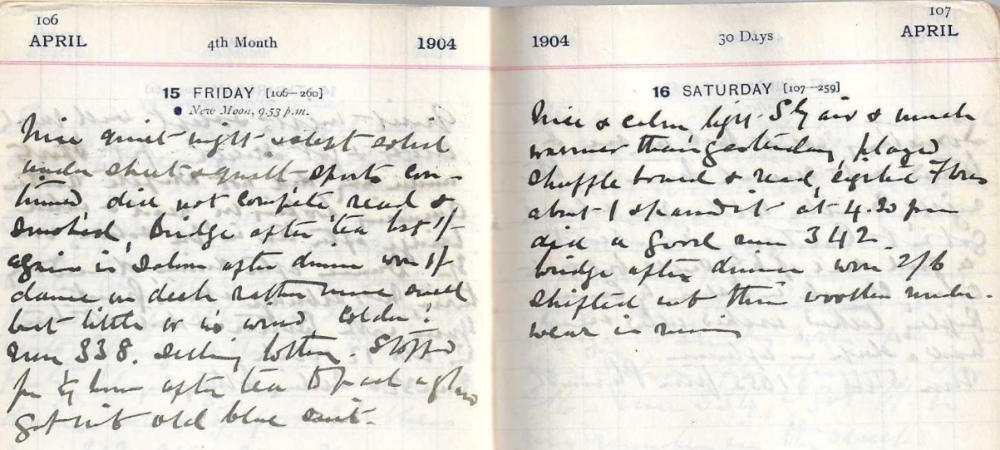 106
APRIL
4th Month
1904
15 FRIDAY [106—260]
● New Moon, 9.53 p.m.
Nice quiet night &
under sheet & quilt - sports con-
tinued, did not compete, read &
smoked, Bridge after tea lost 1/-
again in Saloon after dinner won 1/-
dance on deck rather more swell
but little or no wind, colder,
run 338. Stopped
for ½ hour after tea to
got into old blue suit.
107
APRIL
1904
30 Days
16 SATURDAY [107—259]
Nice & calm, light air & much
warmer than yesterday, played
shuffle board & read,
about at 4.20 pm
did a good run 342.
bridge after dinner won 2/6
shifted into thin woollen under-
wear in